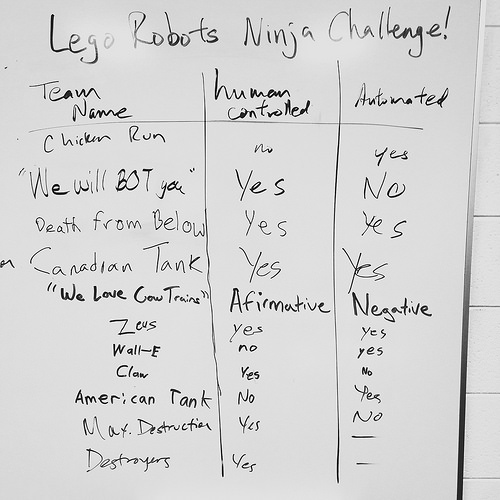 Lego Robots Ninja Challenge!
Team Name human controlled Automated
Chicken Run no yes
"We will BOT you" Yes No
Death from Below Yes Yes
Canadian Tank Yes Yes
"We Love Cow Trains" Afirmative Negative
Zeus yes yes
Wall-E no yes
Claw Yes No
American Tank No Yes
Max. Destruction Yes No
Destroyers Yes —